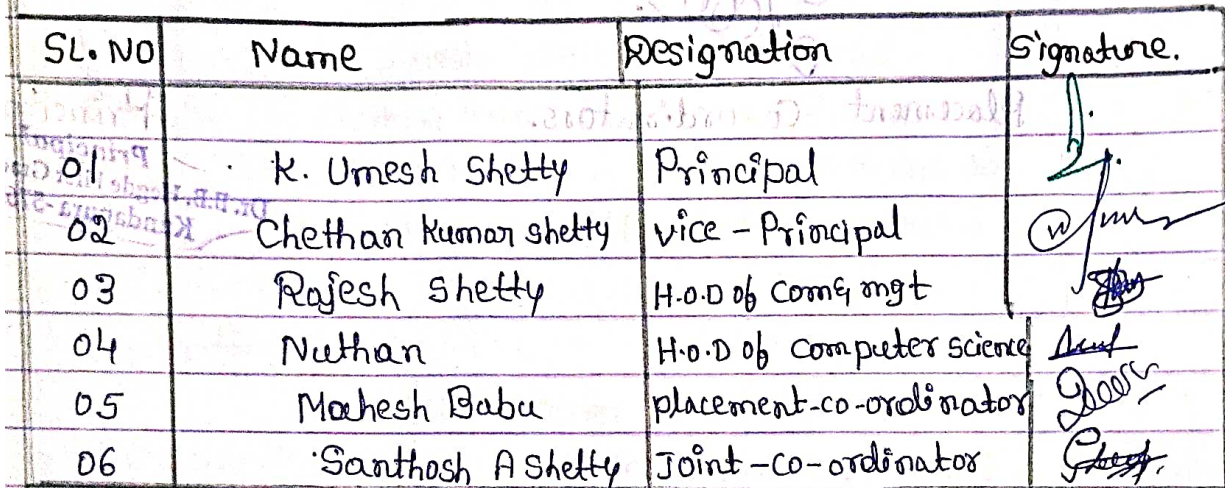 SL. NO Name Designation Signature.
01 K. Umesh Shetty Principal
02 Chethan Kumar Shetty vice - Principal
03 Rajesh Shetty H.O.D of Com & mgt
04 Nuthan H.O.D of Computer Science
05 Mahesh Babu placement-co-ordinator
06 Santhosh A Shetty Joint-co-ordinator